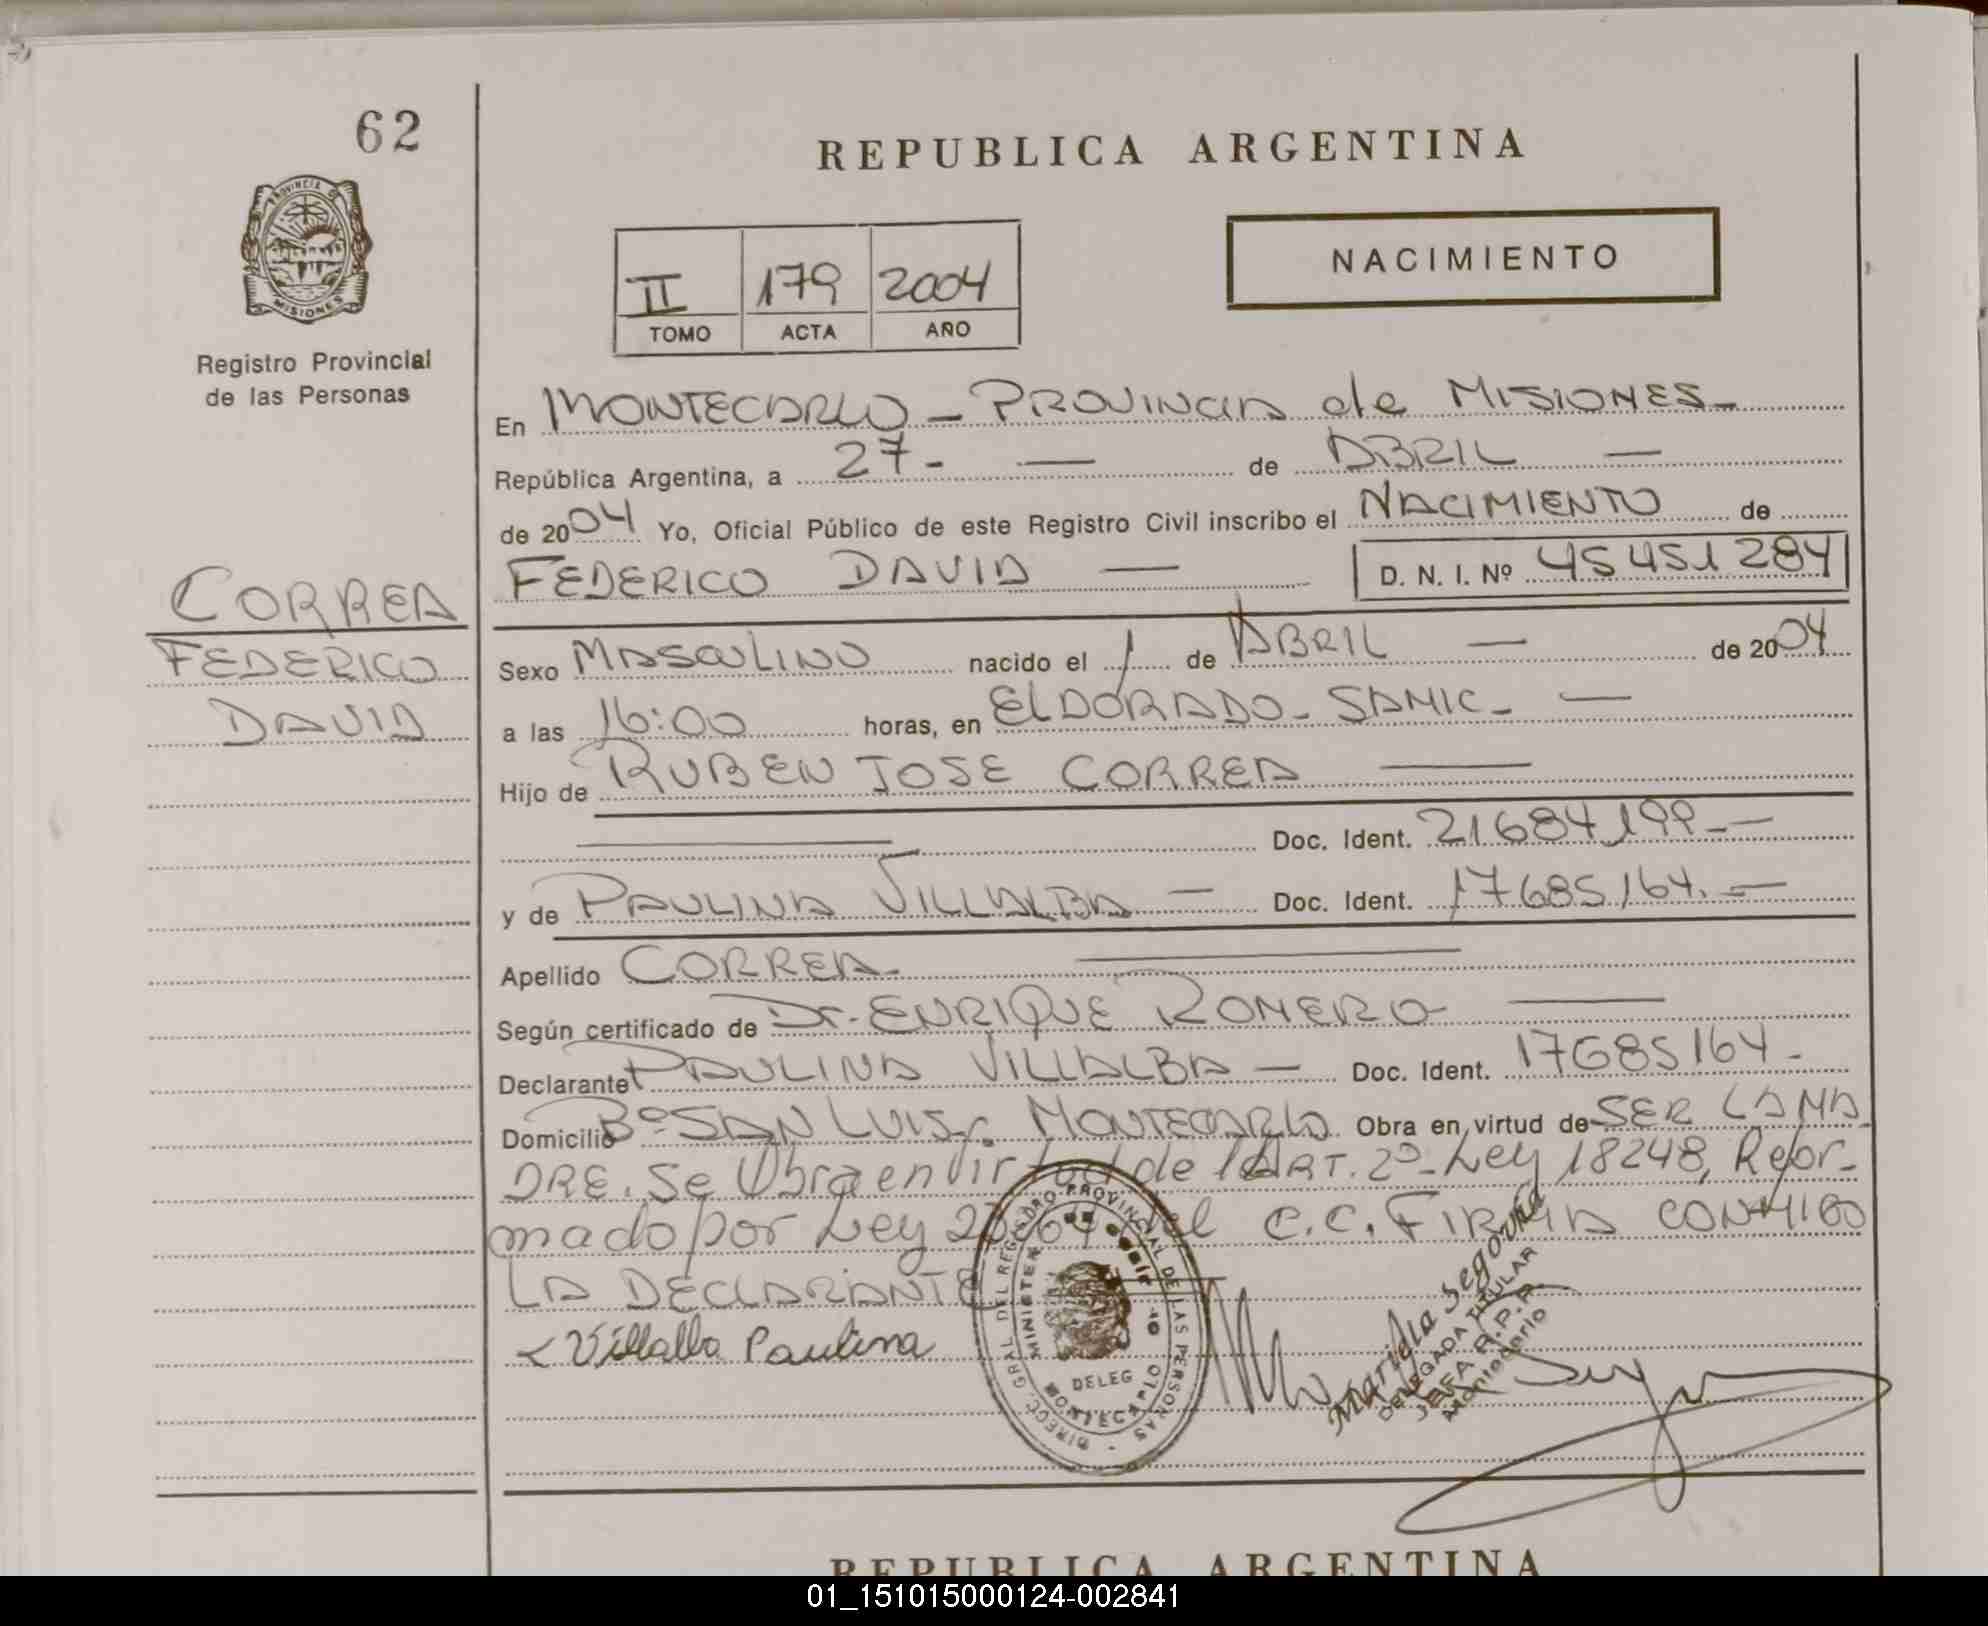 62
REPUBLICA ARGENTINA
PROVINCIA DE
MISIONES
NACIMIENTO
II 179 2004
TOMO ACTA AÑO
Registro Provincial
de las Personas
En MONTECARLO - PROVINCIA de MISIONES -
República Argentina, a 27 - — de ABRIL —
de 2004 Yo, Oficial Público de este Registro Civil inscribo el NACIMIENTO de
FEDERICO DAVID — D. N. I. Nº 45451284
CORREA
FEDERICO
DAVID
Sexo MASCULINO nacido el 1 de ABRIL — de 2004
a las 16:00 horas, en ELDORADO - SAMIC - —
Hijo de RUBEN JOSE CORREA —
Doc. Ident. 21684199 - —
y de PAULINA VILLALBA — Doc. Ident. 17685164. —
Apellido CORREA - —
Según certificado de Dr. ENRIQUE ROMERO —
Declarante PAULINA VILLALBA — Doc. Ident. 17685164 -
Domicilio Bº SAN LUIS, MONTECARLO Obra en virtud de SER LA MA
DRE. Se Obra en virtud de l ART. 2º - Ley 18248, Refor-
mado por Ley del C.C. FIRMA CONMIGO
LA DECLARANTE
Villalba Paulina
DIRECC. GRAL DEL REGISTRO PROVINCIAL DE LAS PERSONAS
DELEG
MONTECARLO
Mariela Segovia
DELEGADA TITULAR
JEFA R.P.P.
Montecarlo
REPUBLICA ARGENTINA
01_151015000124-002841